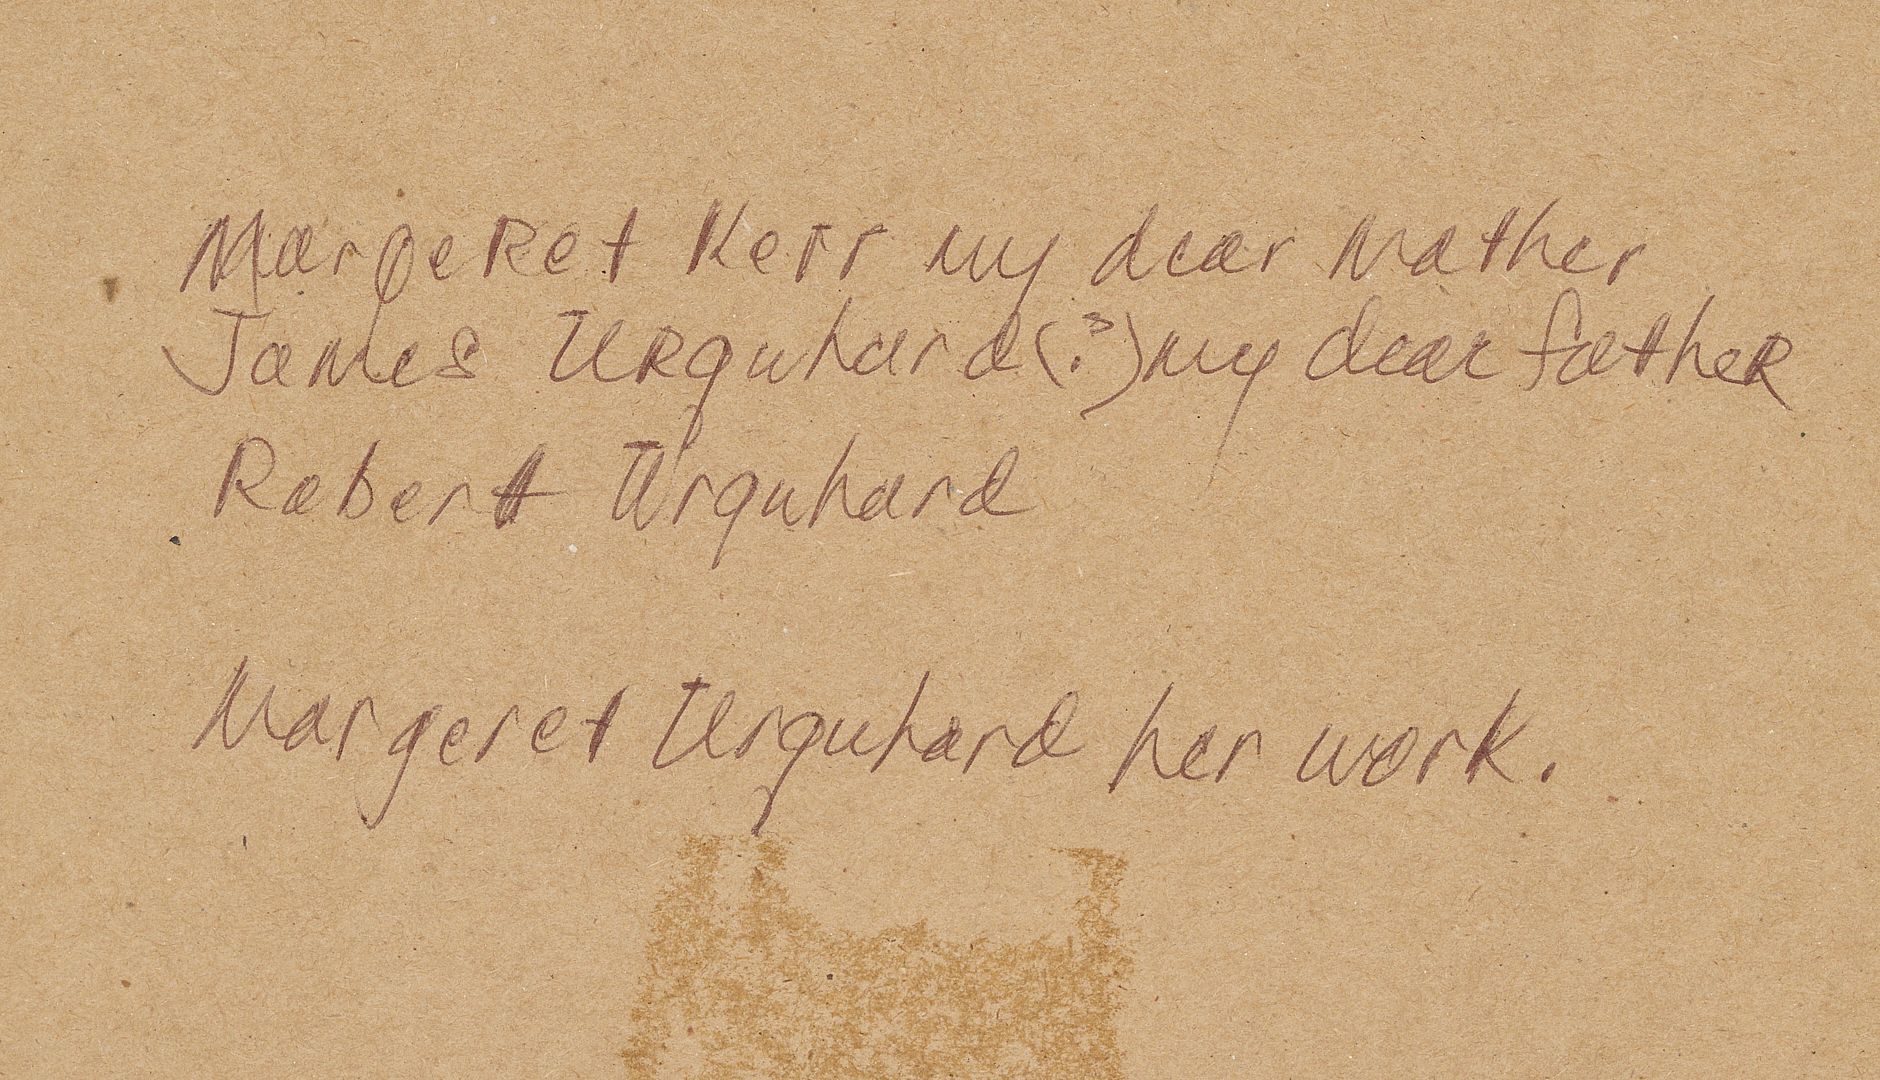 Margeret Kerr my dear mother
James Urquhard(?) my dear father
Robert Urquhard
Margeret Urquhard her work.